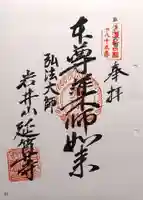 奉拝
本尊薬師如来
弘法大師
岩井山延算寺